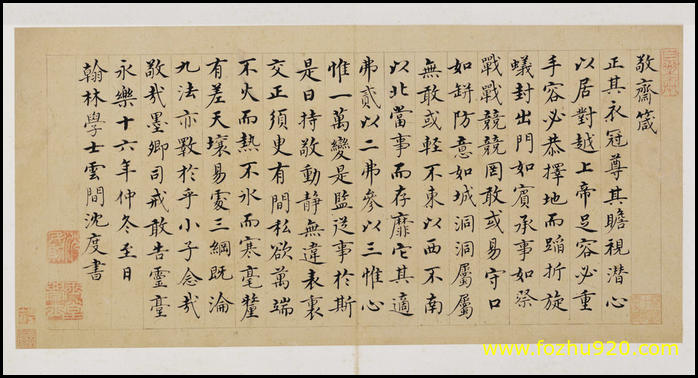 敬齋箴
正其衣冠尊其瞻視潜心
以居對越上帝足容必重
手容必恭擇地而蹈折旋
蟻封出門如賓承事如祭
戰戰兢兢罔敢或易守口
如缾防意如城洞洞屬屬
無敢或輕不東以西不南
以北當事而存靡它其適
弗貳以二弗參以三惟心
惟一萬變是監從事於斯
是曰持敬動靜無違表裏
交正須臾有間私欲萬端
不火而熱不氷而寒毫釐
有差天壤易處三綱既淪
九法亦斁於乎小子念哉
敬哉墨卿司戒敢告靈臺
永樂十六年仲冬至日
翰林學士雲間沈度書
www.fozhu920.com